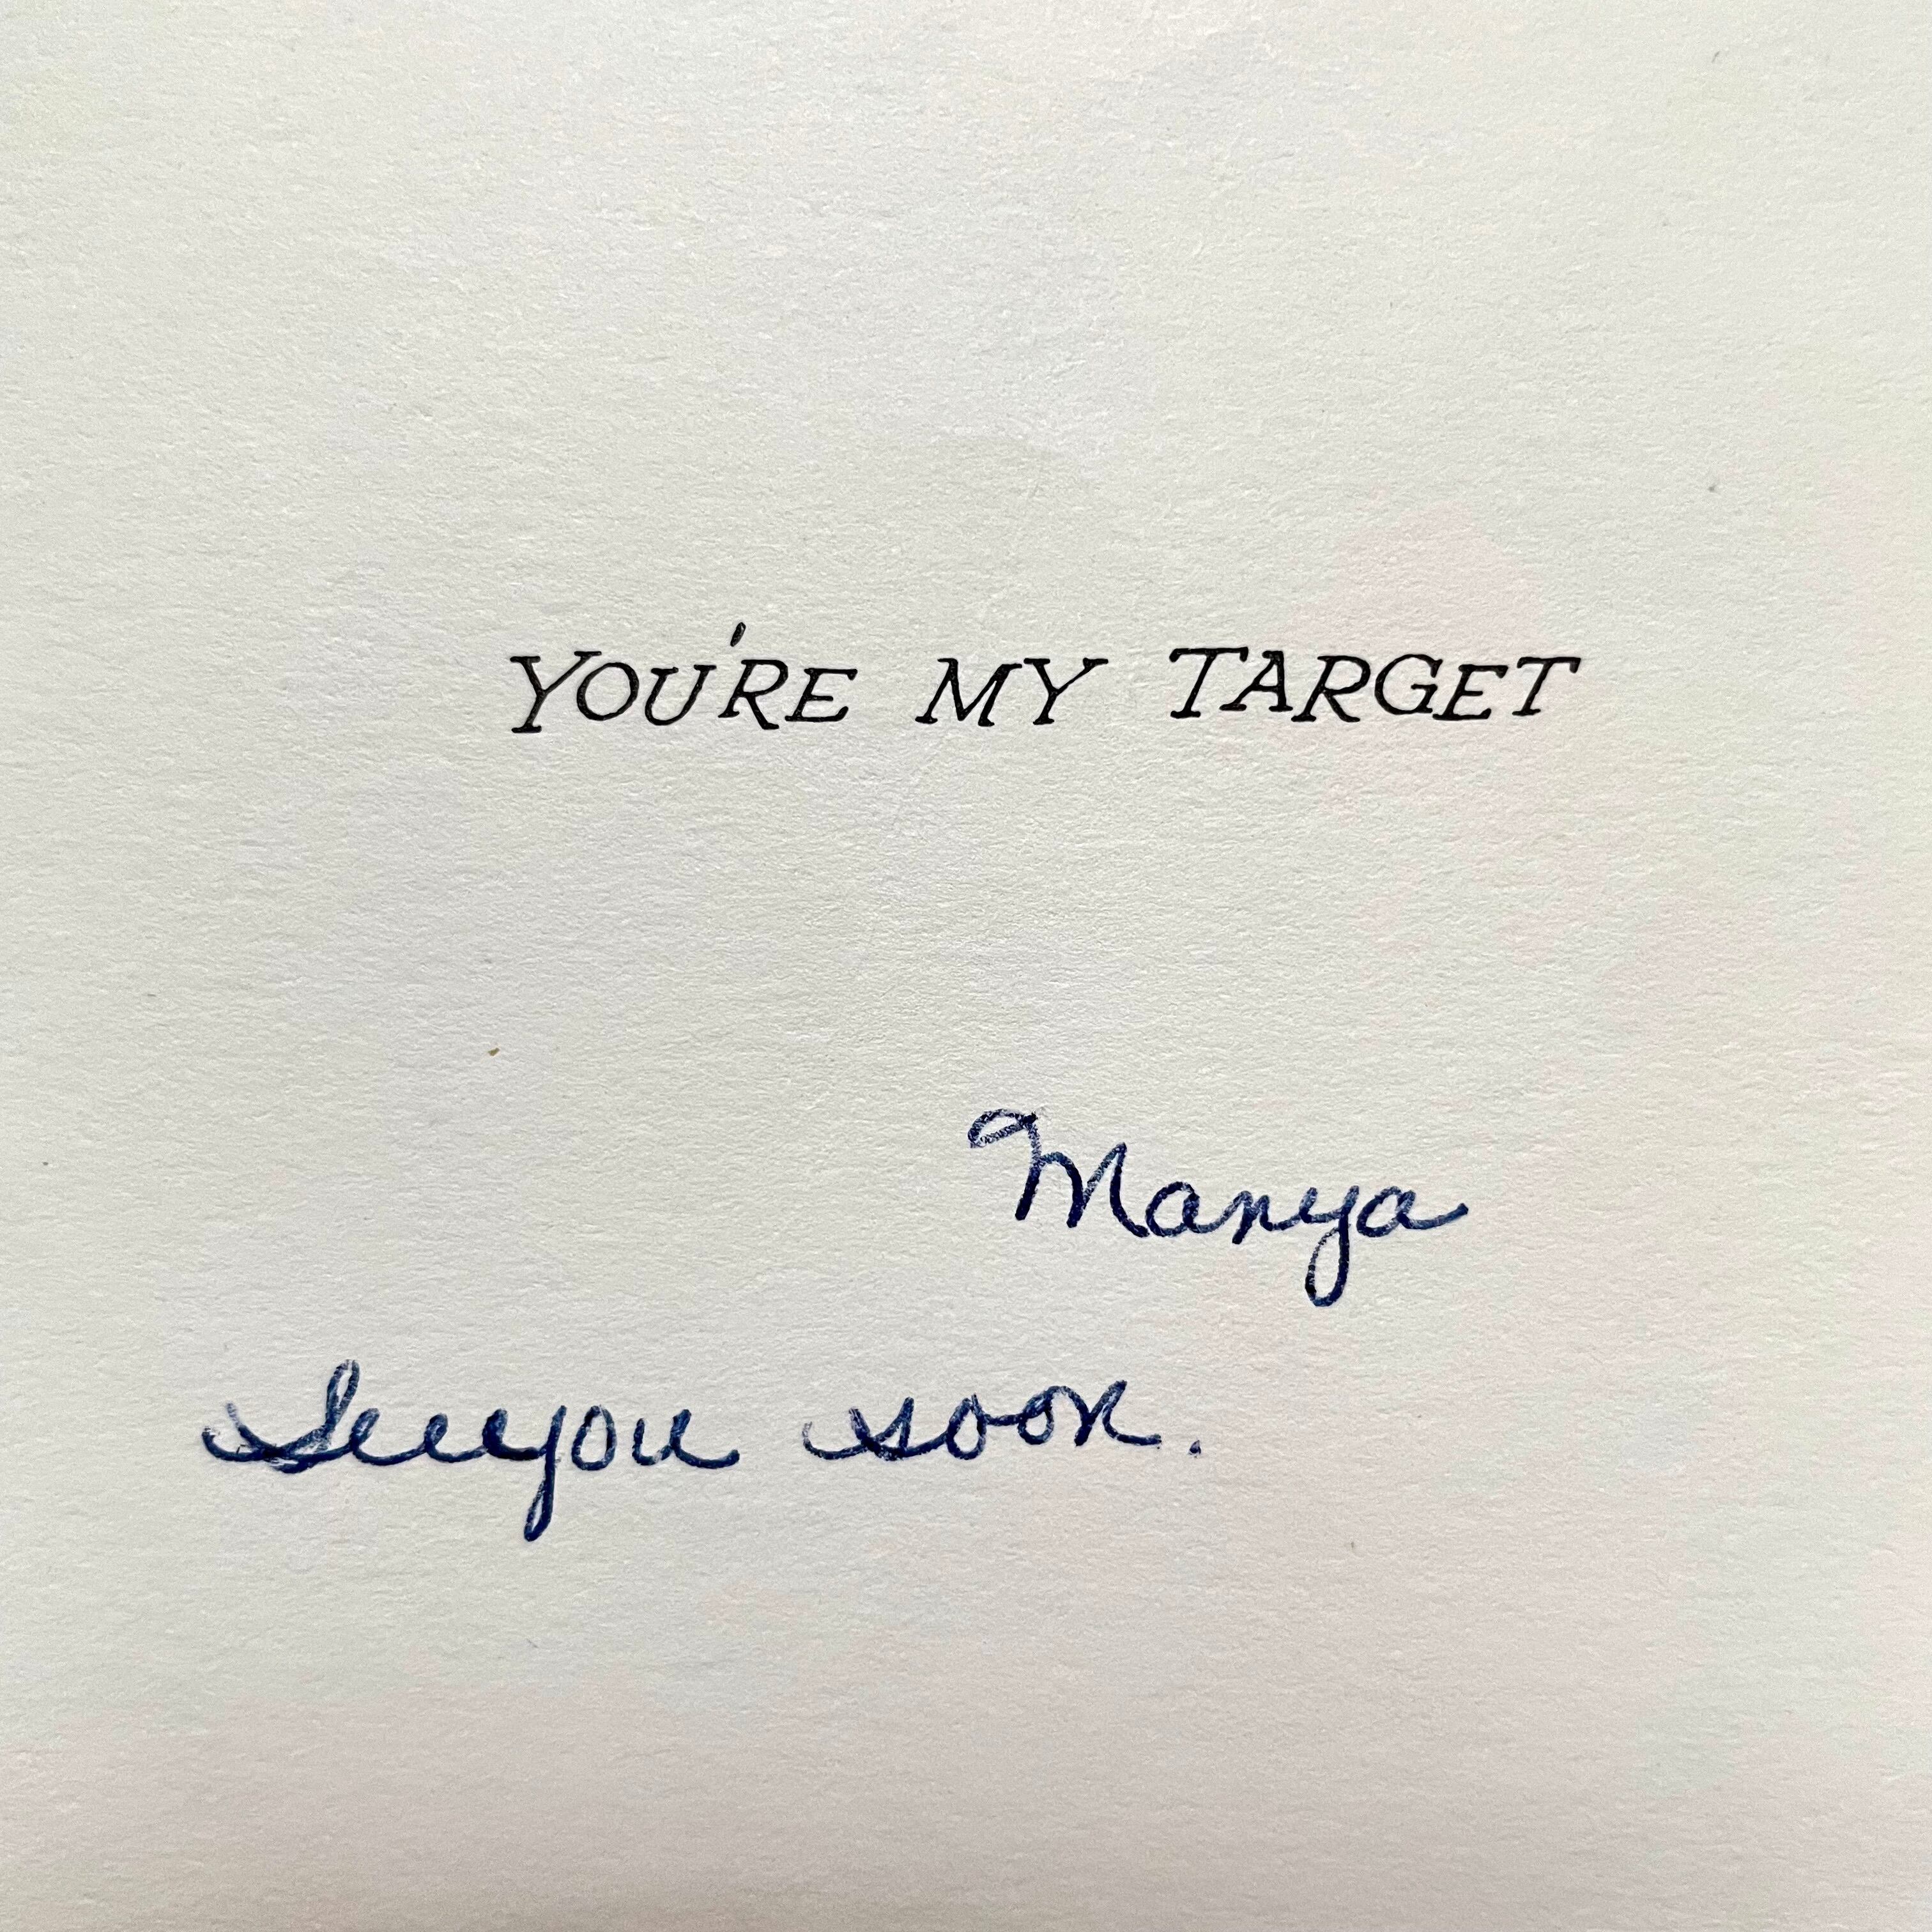 YOU'RE MY TARGET
Manya
See you soon.